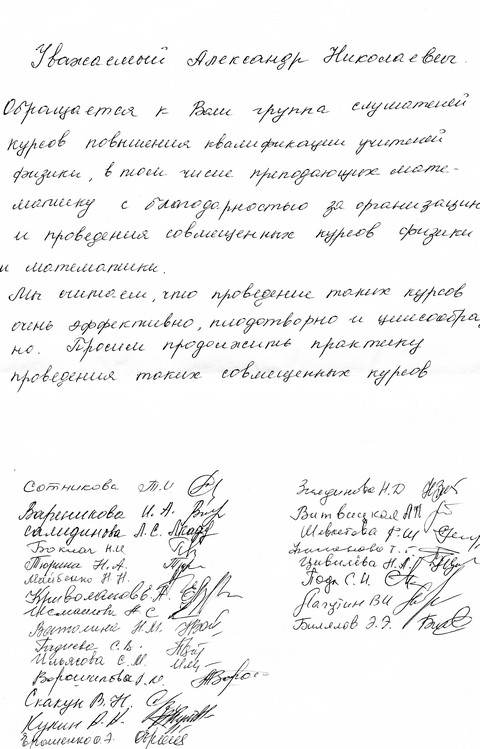 Уважаемый Александр Николаевич.
Обращается к Вам группа слушателей
курсов повышения квалификации учителей
физики, в том числе преподающих мате-
матику с благодарностью за организацию
и проведения совмещенных курсов физики
и математики.
Мы считаем, что проведение таких курсов
очень эффективно, плодотворно и целесообраз
но. Просим продолжить практику
проведения таких совмещенных курсов
Сотникова Т.И
Вареникова И. А.
Самединова Л.С.
Боклаг Н.И
Тюрина Н.А.
Майбенко Н.Н.
Исмаилова А С
Ватолина Н.М.
Гадиева С.В.
Ильясова С.М.
Ворошилова
Скакун В.Н.
Кукин
Еромейко О.Э.
Н.Д
Витвицкая АП
Шевкетова
Цивилёва Н.А.
Подк С.И.
Лагутин В.И
Билялов Э.Э.